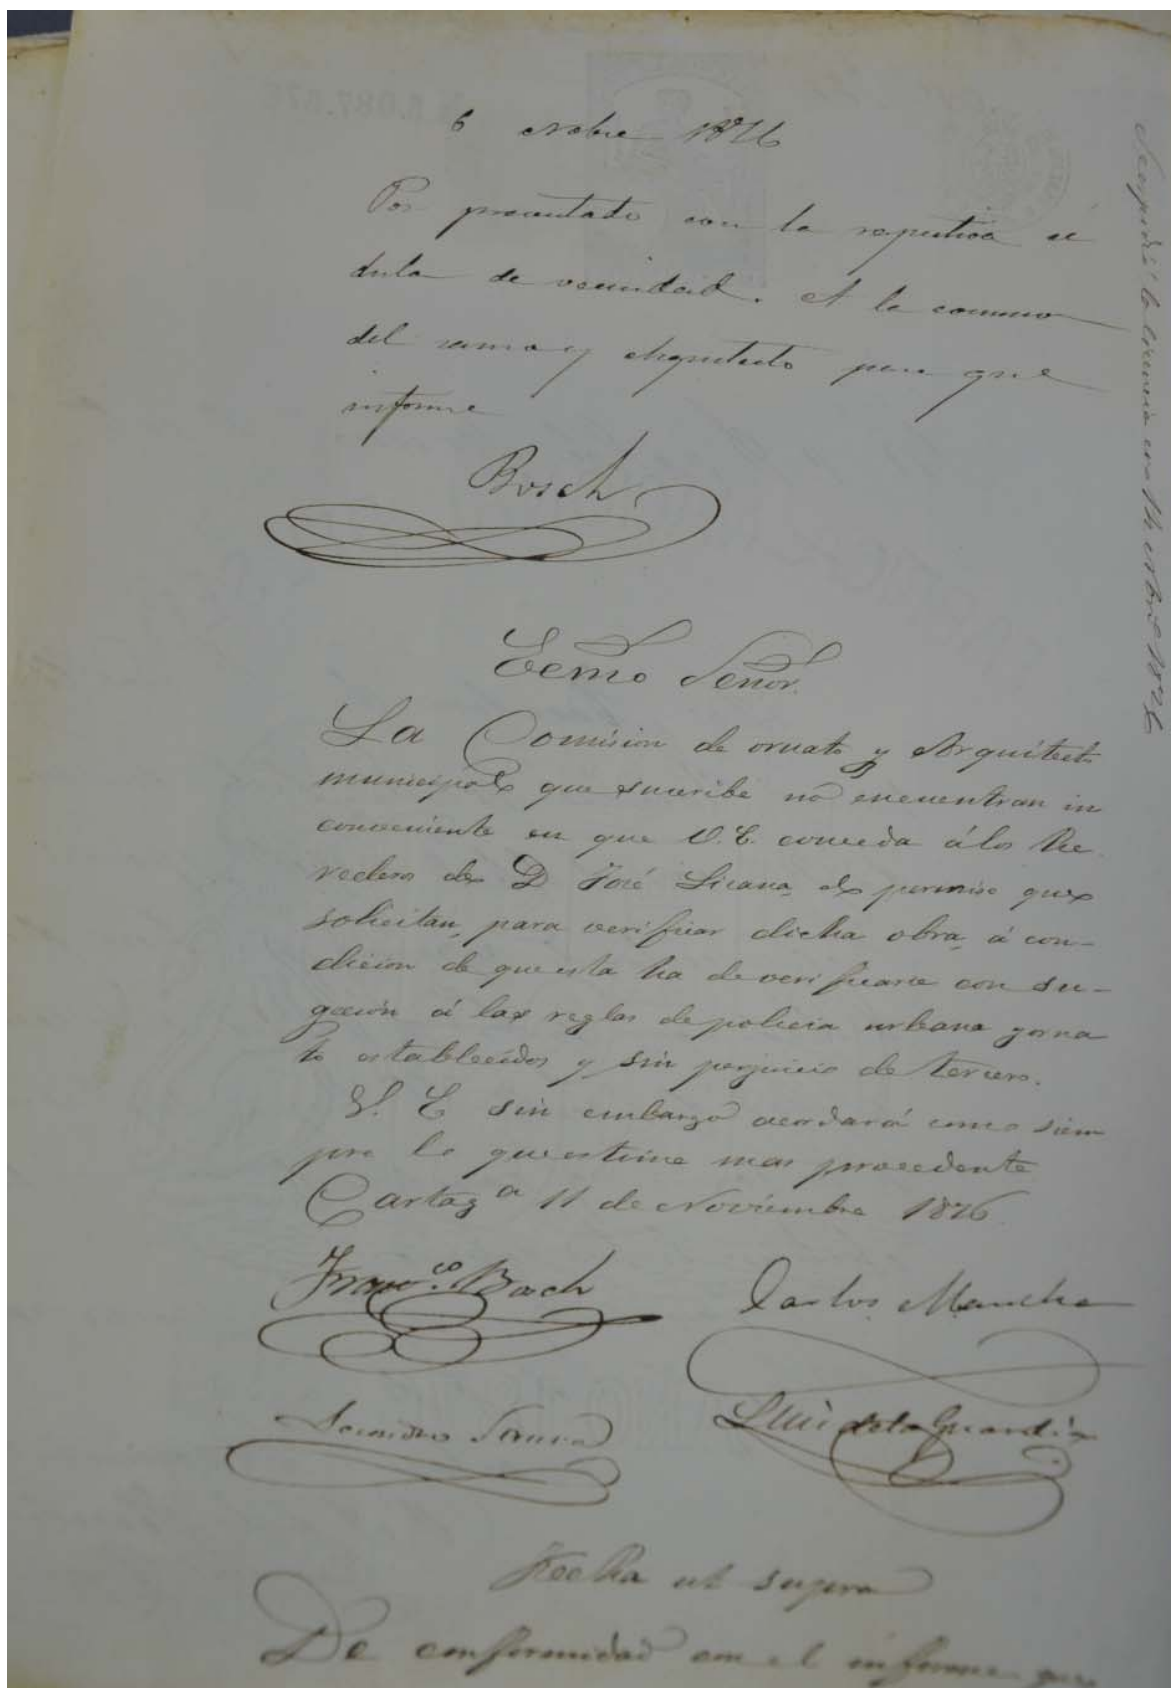 6 novbre 1876
Por presentado con la respectiva cé
dula de vecindad. A la comision
del ramo y Arquitecto para que
informe
Bosch
Ecmo Señor.
La Comision de ornato y Arquitecto
municipal que suscribe no encuentran in
conveniente en que V. E. conceda á los he
rederos de D José Licana, el permiso que
solicitan, para verificar dicha obra, á con-
dicion de que esta ha de verificarse con su-
gecion á las reglas de policia urbana y orna
to establecidos y sin perjuicio de tercero.
V. E sin embargo acordará como siem
pre lo que estime mas procedente
Cartagª 11 de Noviembre 1876.
Francº. Bosch
Carlos Mancha
Luis de la Guardia
Fecha ut supra
De conformidad con el informe que
Se espidió la licencia en 14 novbre 1876